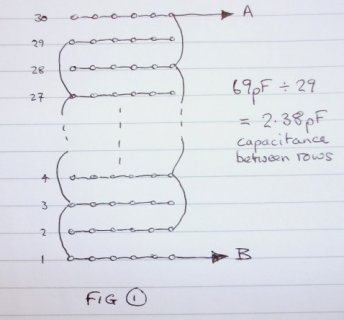 30 A
29
28
27
69pF ÷ 29
= 2.38pF
capacitance
between rows
4
3
2
1 B
FIG 1